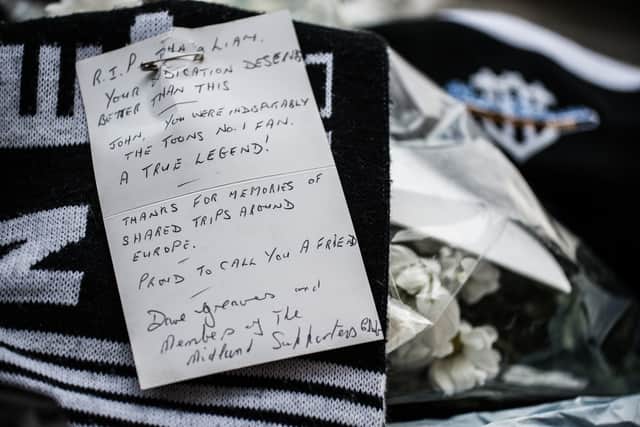 R.I.P. JOHN & LIAM.
YOUR DEDICATION DESERVED
BETTER THAN THIS
JOHN, YOU WERE INDISPUTABLY
THE TOONS NO. 1 FAN.
A TRUE LEGEND!
THANKS FOR MEMORIES OF
SHARED TRIPS AROUND
EUROPE.
PROUD TO CALL YOU A FRIEND
Dave Greaves and
Members of The
Midland Supporters Club